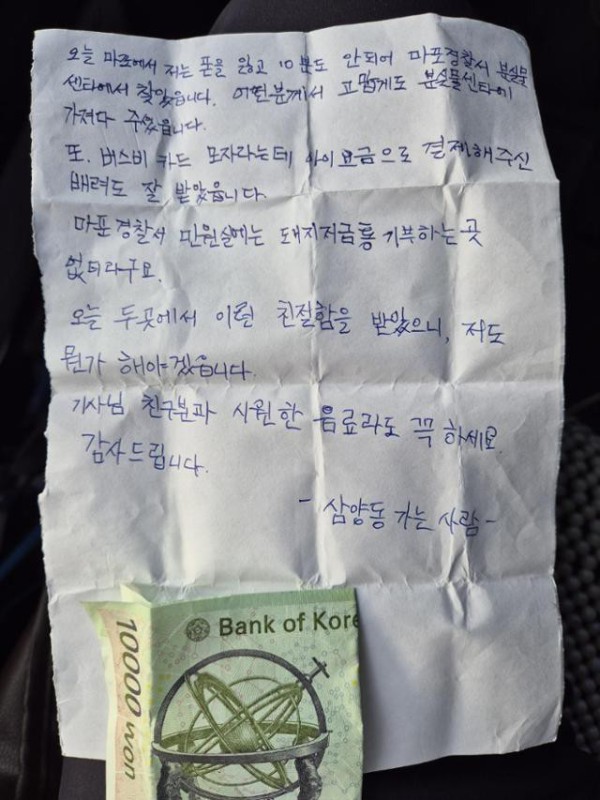 오늘 마포에서 저는 폰을 잃고 10분도 안되어 마포경찰서 분실물
센타에서 찾았습니다. 어떤분께서 고맙게도 분실물센타에
가져다 주었습니다.
또. 버스비 카드 모자라는데 아이요금으로 결제해주신
배려도 잘 받았습니다.
마포경찰서 민원실에는 돼지저금통 기부하는 곳
없더라구요.
오늘 두곳에서 이런 친절함을 받았으니, 저도
뭔가 해야겠습니다.
기사님 친구분과 시원한 음료라도 꼭 하세요
감사드립니다.
- 삼양동 가는 사람 -
Bank of Kore
10000 won